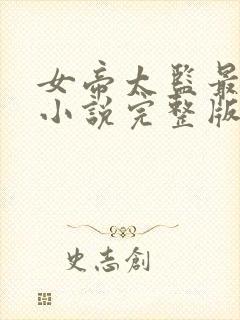 女帝太監最
小說完整版
史志創